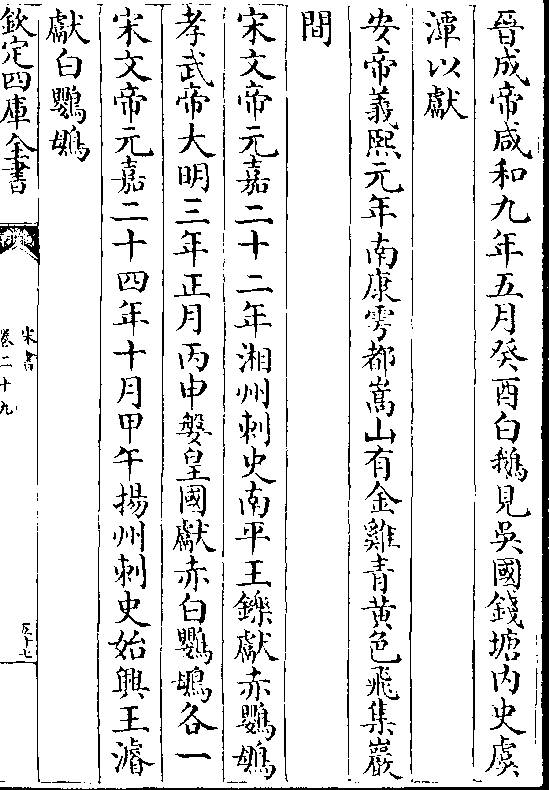 晉成帝咸和九年五月癸酉白鵝見吳國錢塘內史虞
潭以獻
安帝義熙元年南康雩都嵩山有金雞青黃色飛集巖
間
宋文帝元嘉二十二年湘州刺史南平王鑠獻赤鸚鵡
孝武帝大明三年正月丙申媻皇國獻赤白鸚鵡各一
宋文帝元嘉二十四年十月甲午揚州刺史始興王濬
獻白鸚鵡
欽定四庫全書
宋書
卷二十九
五十七